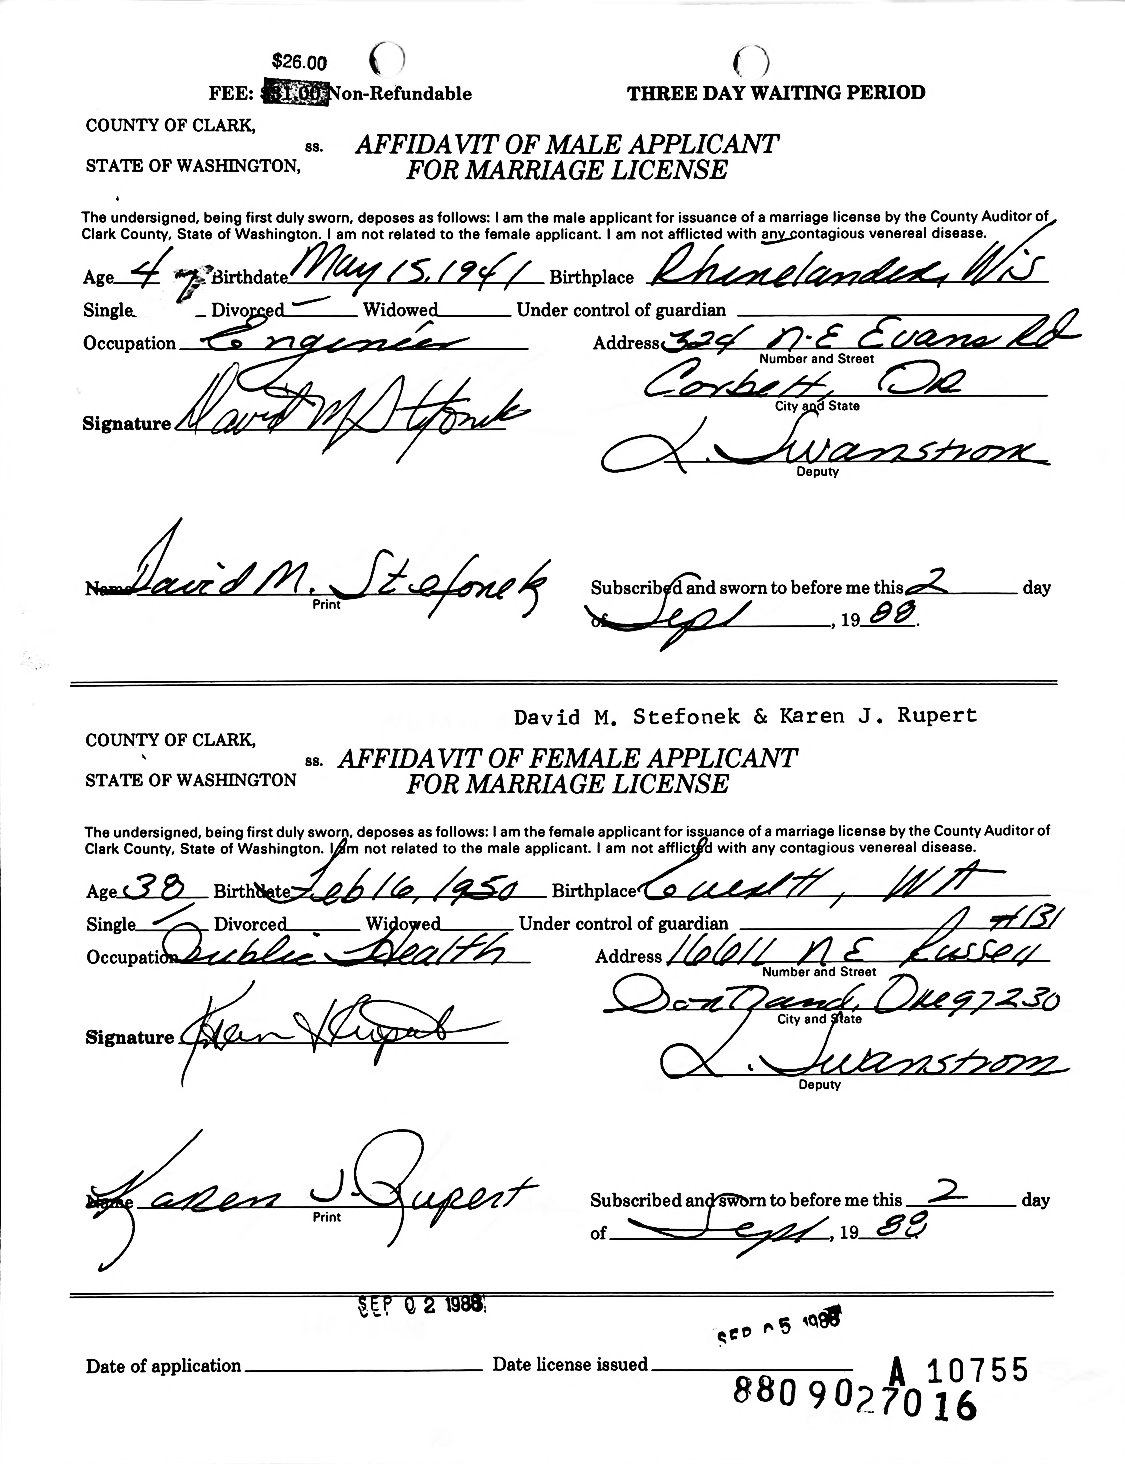 $26.00
FEE: $31.00 Non-Refundable THREE DAY WAITING PERIOD
COUNTY OF CLARK,
ss. AFFIDAVIT OF MALE APPLICANT
STATE OF WASHINGTON, FOR MARRIAGE LICENSE
The undersigned, being first duly sworn, deposes as follows: I am the male applicant for issuance of a marriage license by the County Auditor of
Clark County, State of Washington. I am not related to the female applicant. I am not afflicted with any contagious venereal disease.
Age 47 Birthdate May 15, 1941 Birthplace Rhinelander, Wis
Single Divorced Widowed Under control of guardian
Occupation Engineer Address 324 N.E Evans Rd
Number and Street
Corbett, OR
City and State
Signature David M Stefonek
L. Swanstrom
Deputy
Name David M. Stefonek Subscribed and sworn to before me this 2 day
Print
of Sept, 1988.
David M. Stefonek & Karen J. Rupert
COUNTY OF CLARK,
ss. AFFIDAVIT OF FEMALE APPLICANT
STATE OF WASHINGTON FOR MARRIAGE LICENSE
The undersigned, being first duly sworn, deposes as follows: I am the female applicant for issuance of a marriage license by the County Auditor of
Clark County, State of Washington. I am not related to the male applicant. I am not afflicted with any contagious venereal disease.
Age 38 Birthdate Feb 16, 1950 Birthplace Everett, WA
Single Divorced Widowed Under control of guardian
#131
Occupation Public Health Address 16611 N E Russell
Number and Street
Portland, Ore 97230
City and State
Signature Karen J Rupert
L. Swanstrom
Deputy
Name Karen J. Rupert Subscribed and sworn to before me this 2 day
Print
of Sept, 1988
SEP 02 1988
SEP 05 1988
Date of application Date license issued
A 10755
8809027016